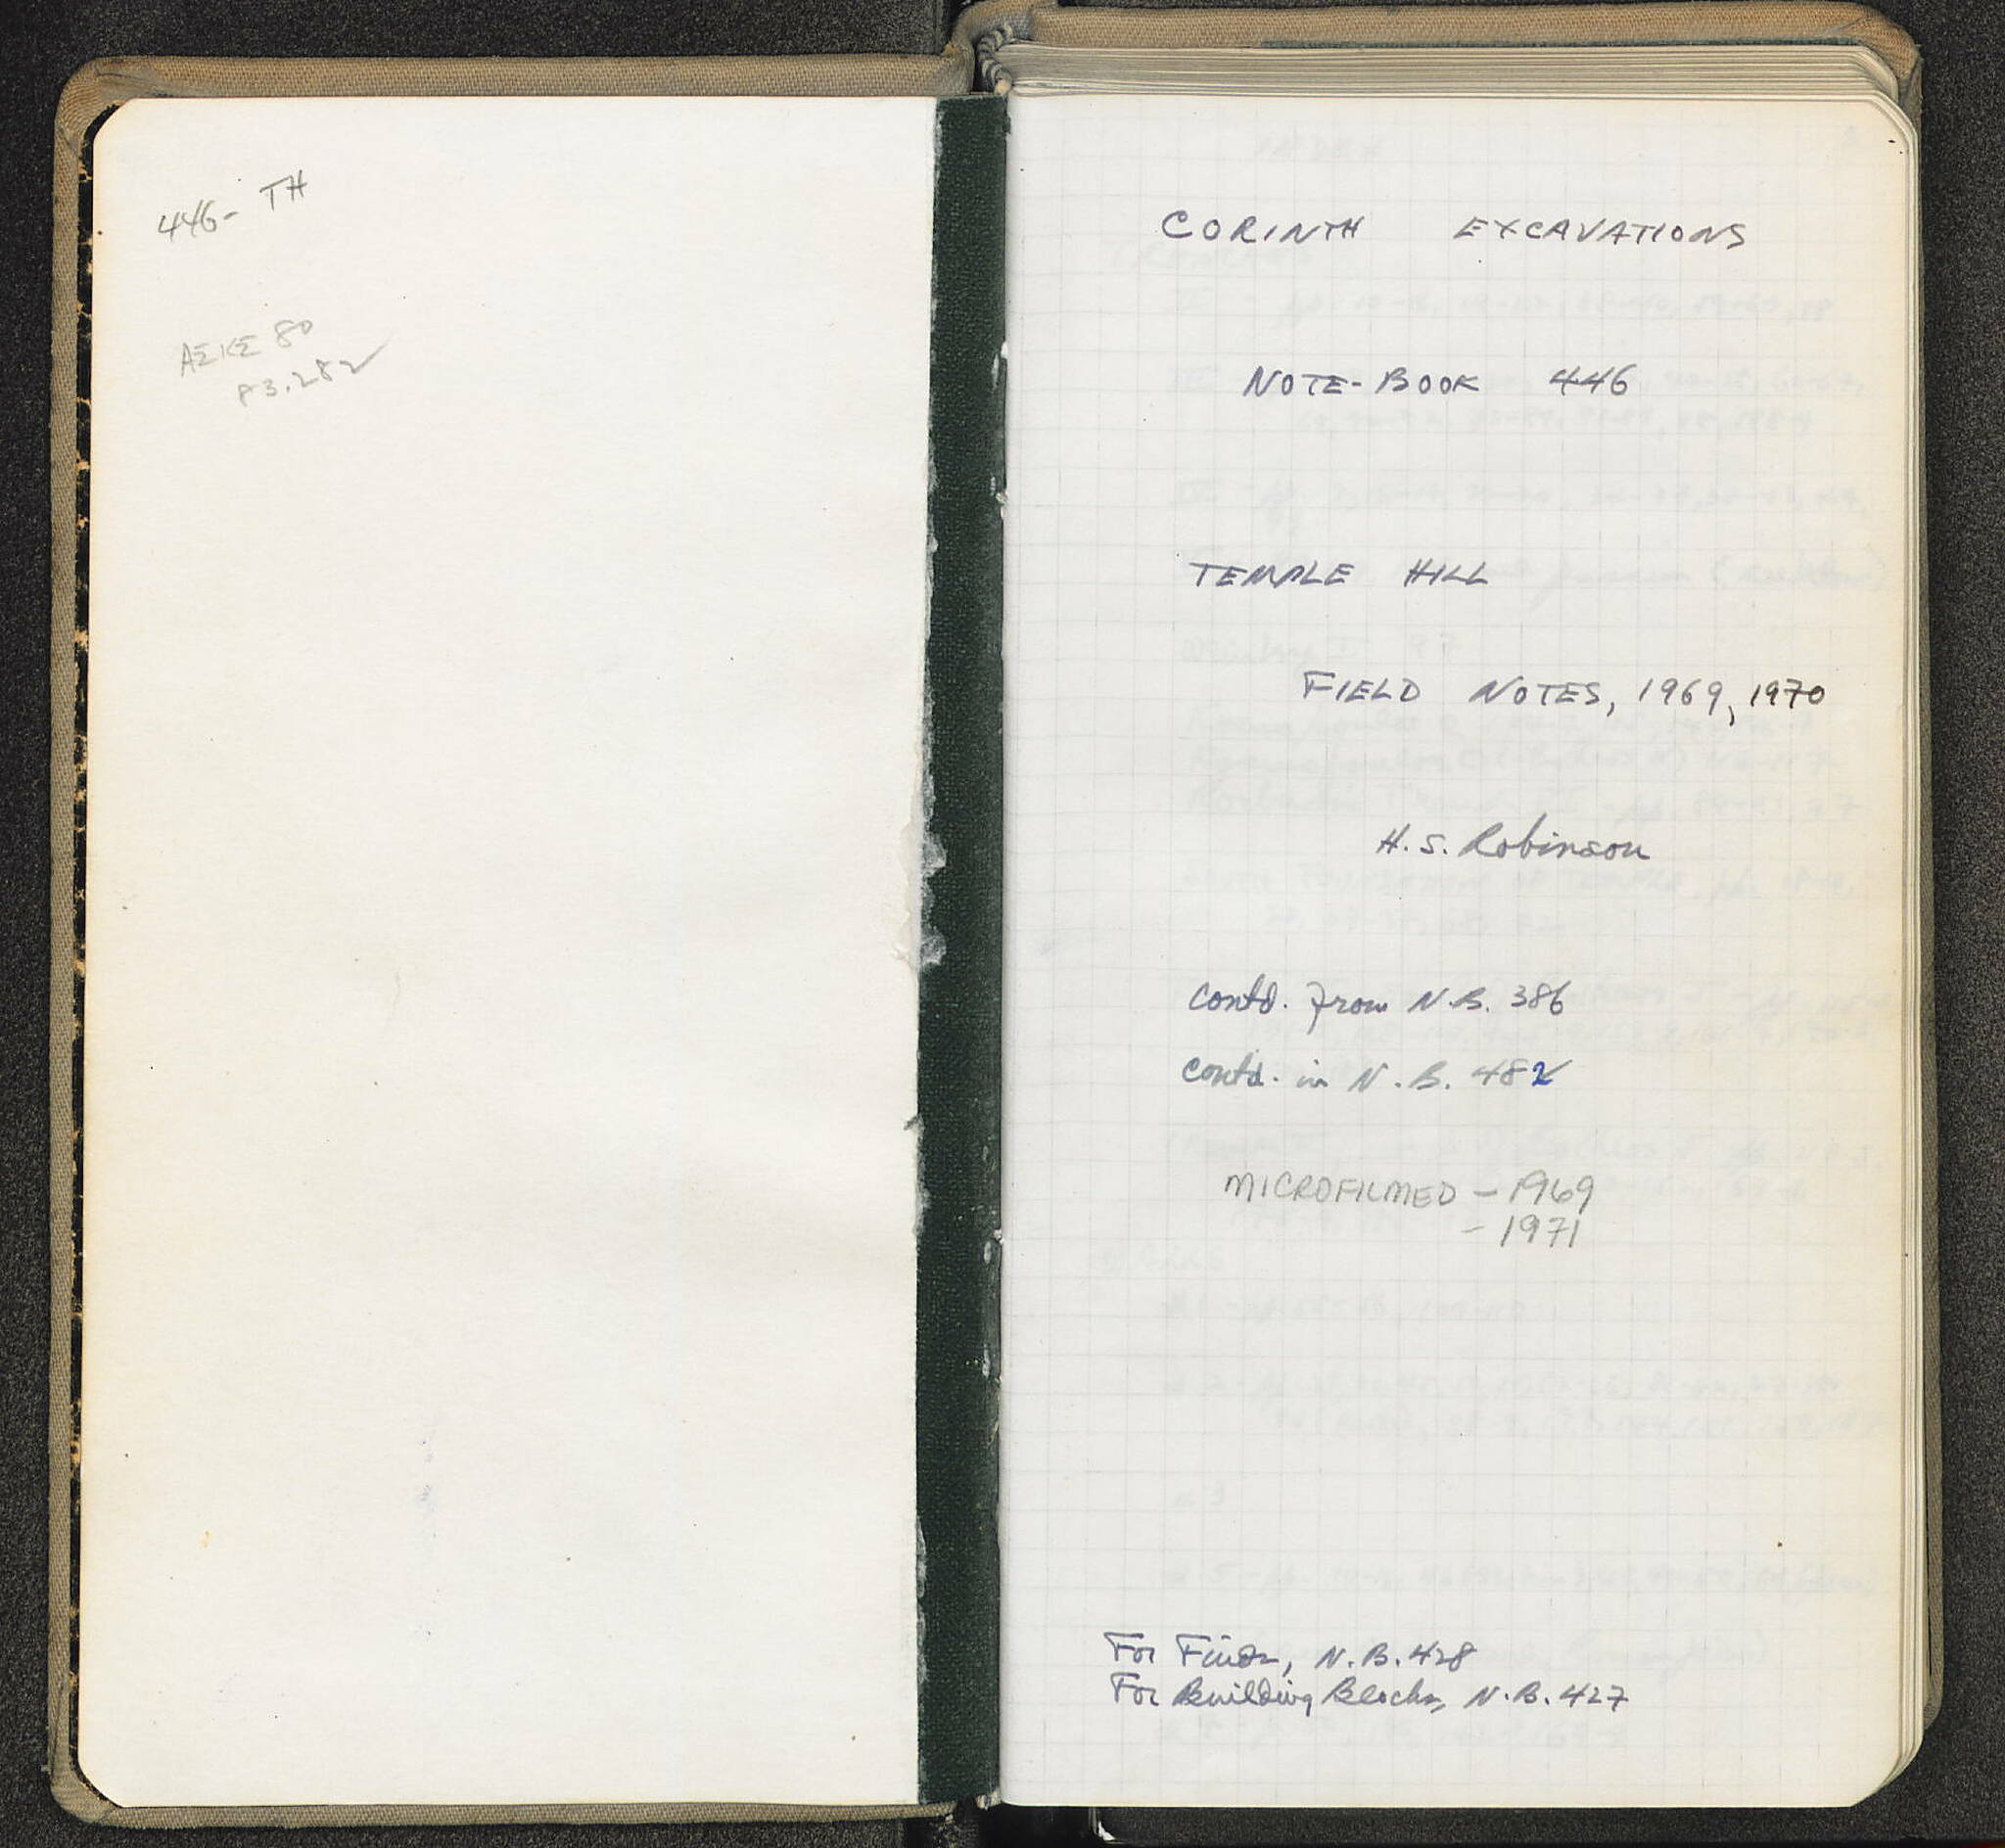 446- TH
ΑΣΚΣ 80
p3.282
CORINTH EXCAVATIONS
NOTE-BOOK 446
TEMPLE HILL
FIELD NOTES, 1969, 1970
H. S. Robinson
contd. from N.B. 386
contd. in N.B. 482
MICROFILMED - 1969
- 1971
For Finds, N.B. 428
For Building Blocks, N.B. 427